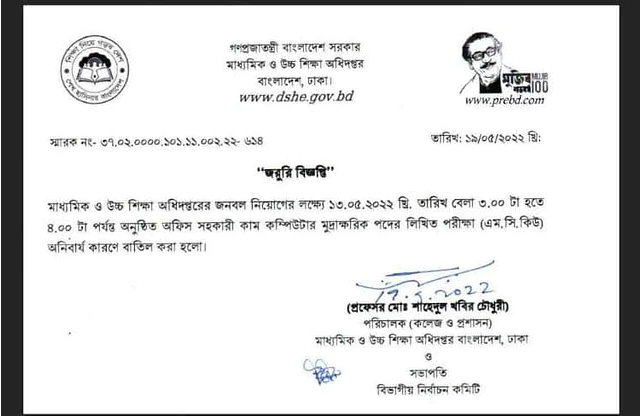 শিক্ষা নিয়ে গড়ব দেশ
শেখ হাসিনার বাংলাদেশ
গণপ্রজাতন্ত্রী বাংলাদেশ সরকার
মাধ্যমিক ও উচ্চ শিক্ষা অধিদপ্তর
বাংলাদেশ, ঢাকা।
www.dshe.gov.bd
মুজিব MUJIB
শতবর্ষ 100
www.prebd.com
স্মারক নং- ৩৭.০২.০০০০.১০১.১১.০০২.২২- ৬১৪
তারিখ: ১৯/০৫/২০২২ খ্রি:
“জরুরি বিজ্ঞপ্তি”
মাধ্যমিক ও উচ্চ শিক্ষা অধিদপ্তরের জনবল নিয়োগের লক্ষ্যে ১৩.০৫.২০২২ খ্রি. তারিখ বেলা ৩.০০ টা হতে
৪.০০ টা পর্যন্ত অনুষ্ঠিত অফিস সহকারী কাম কম্পিউটার মুদ্রাক্ষরিক পদের লিখিত পরীক্ষা (এম.সি.কিউ)
অনিবার্য কারণে বাতিল করা হলো।
১৯.৫.২০২২
(প্রফেসর মোঃ শাহেদুল খবির চৌধুরী)
পরিচালক (কলেজ ও প্রশাসন)
মাধ্যমিক ও উচ্চ শিক্ষা অধিদপ্তর বাংলাদেশ, ঢাকা
ও
সভাপতি
বিভাগীয় নির্বাচন কমিটি